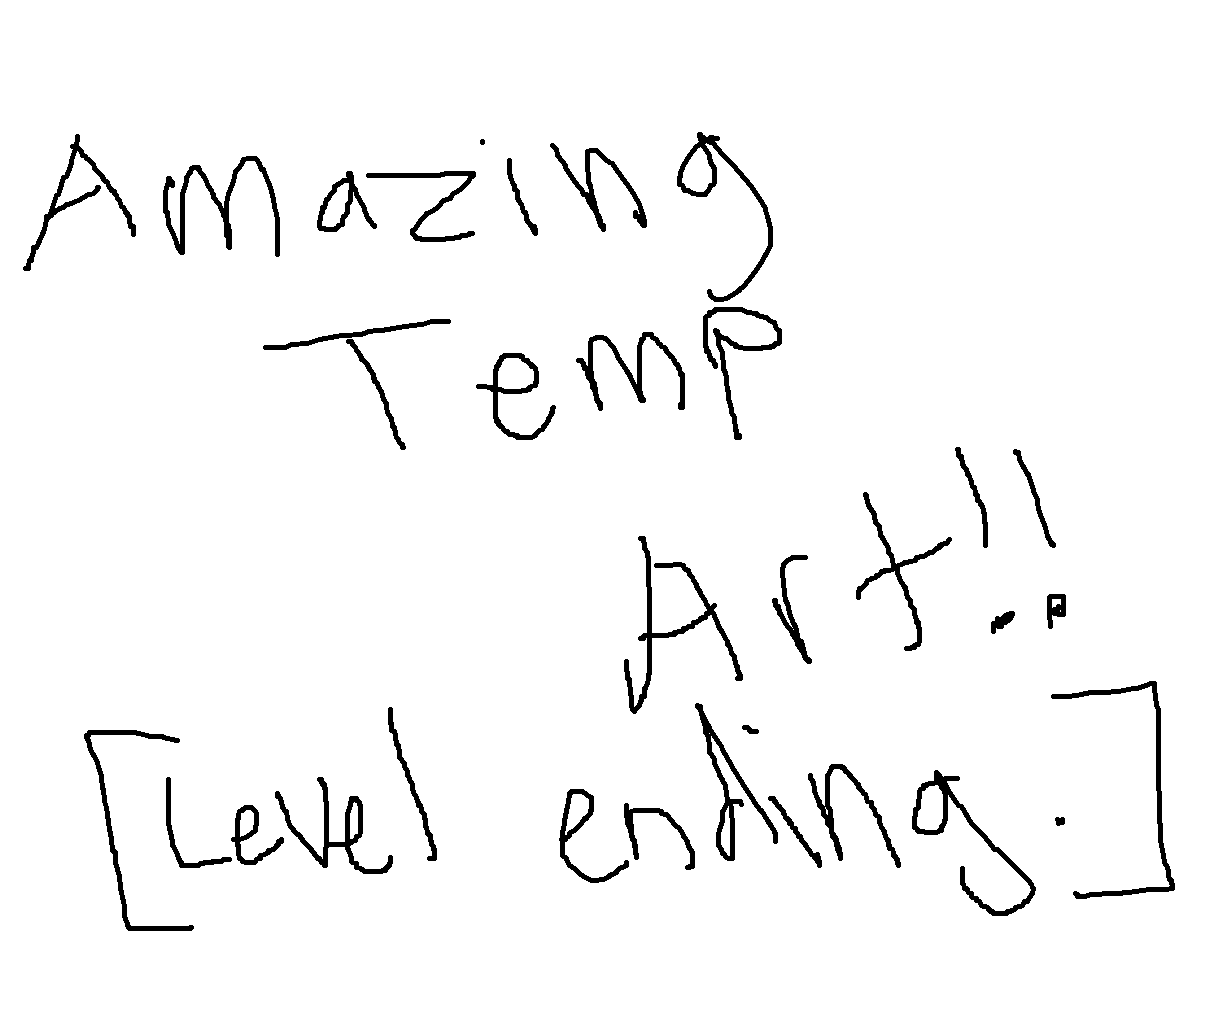 Amazing
Temp
Art!!
[Level ending.]